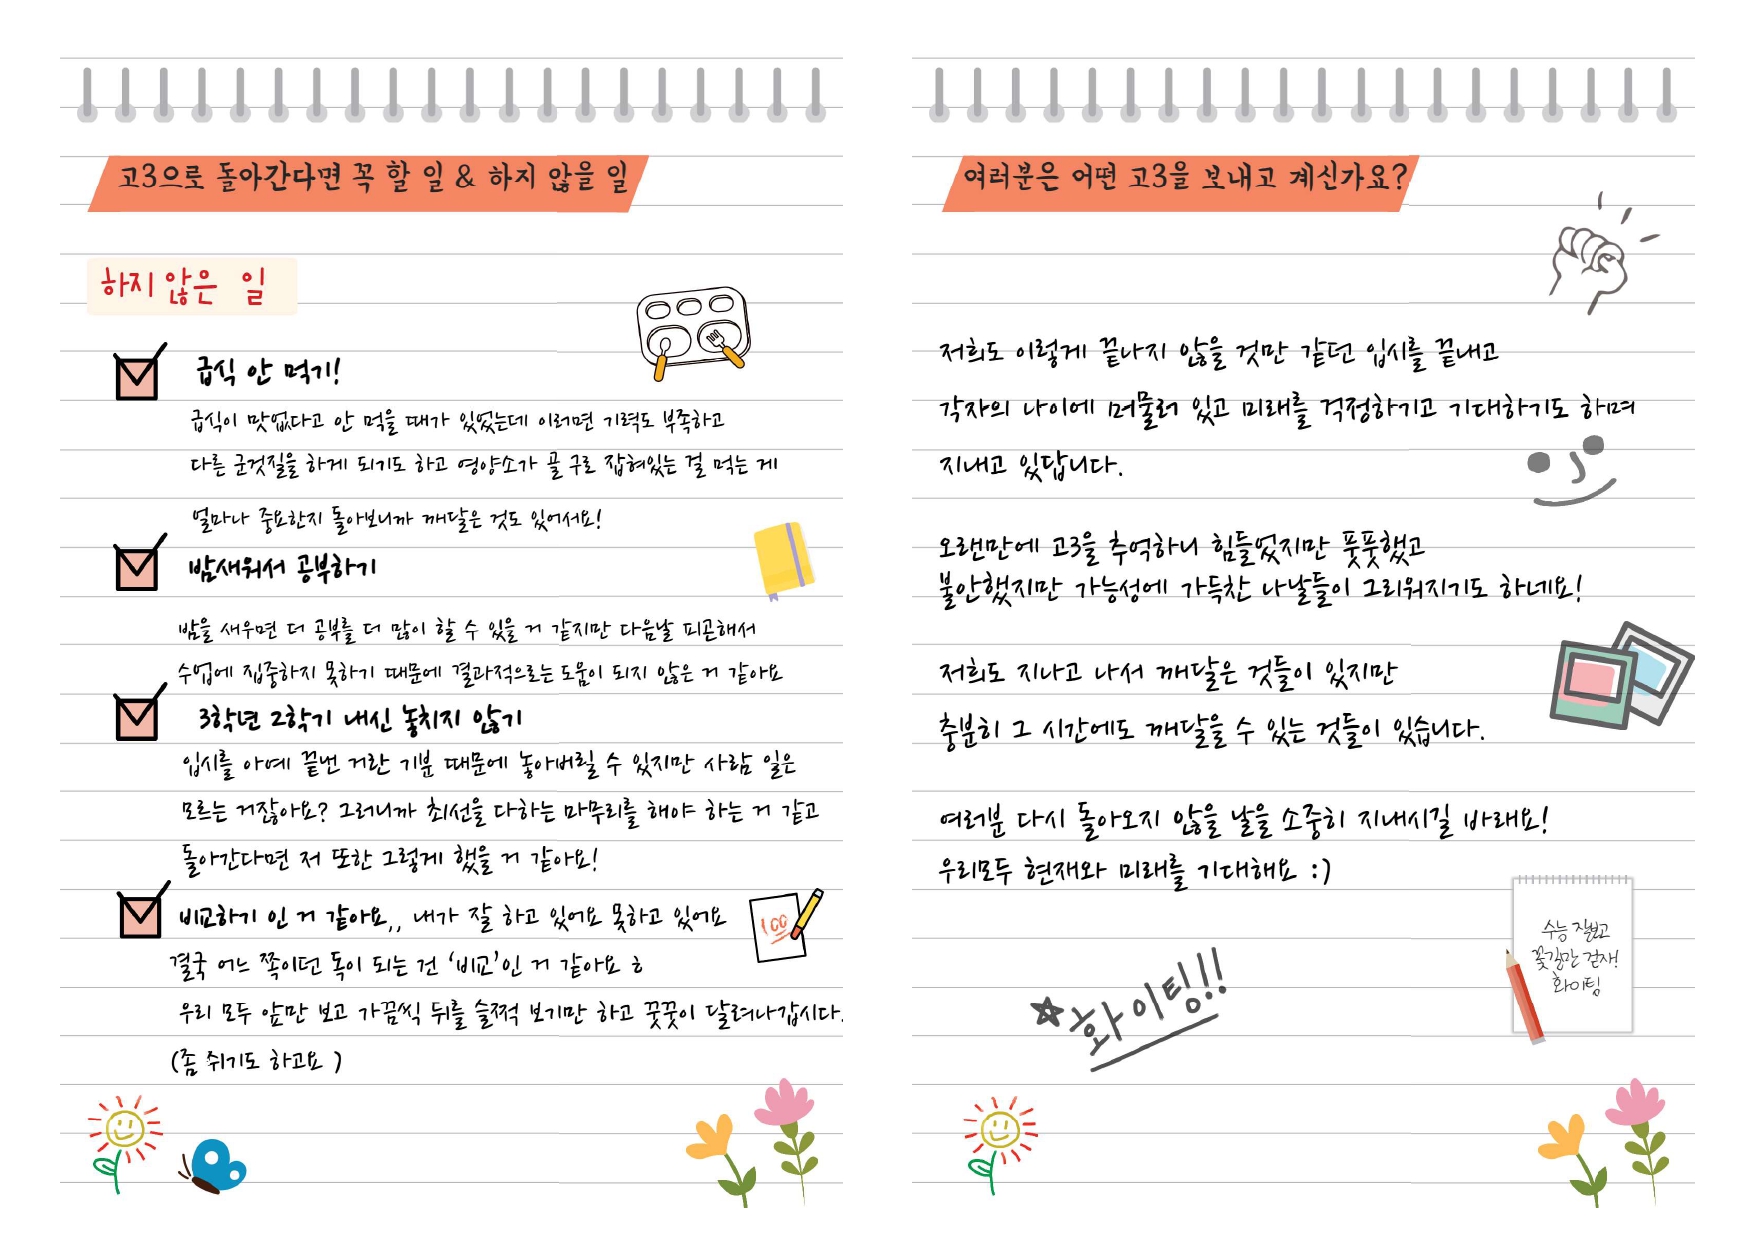 고3으로 돌아간다면 꼭 할 일 & 하지 않을 일
하지 않은 일
급식 안 먹기!
급식이 맛없다고 안 먹을 때가 있었는데 이러면 기력도 부족하고
다른 군것질을 하게 되기도 하고 영양소가 골 구로 잡혀있는 걸 먹는 게
얼마나 중요한지 돌아보니까 깨달은 것도 있어서요!
밤새워서 공부하기
밤을 새우면 더 공부를 더 많이 할 수 있을 거 같지만 다음날 피곤해서
수업에 집중하지 못하기 때문에 결과적으로는 도움이 되지 않은 거 같아요
3학년 2학기 내신 놓치지 않기
입시를 아예 끝낸 거란 기분 때문에 놓아버릴 수 있지만 사람 일은
모르는 거잖아요? 그러니까 최선을 다하는 마무리를 해야 하는 거 같고
돌아간다면 저 또한 그렇게 했을 거 같아요!
비교하기 인 거 같아요,, 내가 잘 하고 있어요 못하고 있어요
100
결국 어느 쪽이던 독이 되는 건 ‘비교’인 거 같아요 ㅎ
우리 모두 앞만 보고 가끔씩 뒤를 슬쩍 보기만 하고 꿋꿋이 달려나갑시다.
(좀 쉬기도 하고요 )
여러분은 어떤 고3을 보내고 계신가요?
저희도 이렇게 끝나지 않을 것만 같던 입시를 끝내고
각자의 나이에 머물러 있고 미래를 걱정하기고 기대하기도 하며
지내고 있답니다.
오랜만에 고3을 추억하니 힘들었지만 풋풋했고
불안했지만 가능성에 가득찬 나날들이 그리워지기도 하네요!
저희도 지나고 나서 깨달은 것들이 있지만
충분히 그 시간에도 깨달을 수 있는 것들이 있습니다.
여러분 다시 돌아오지 않을 날을 소중히 지내시길 바래요!
우리모두 현재와 미래를 기대해요 :)
수능 잘보고
꽃길만 걷자!
화이팅
화이팅!!